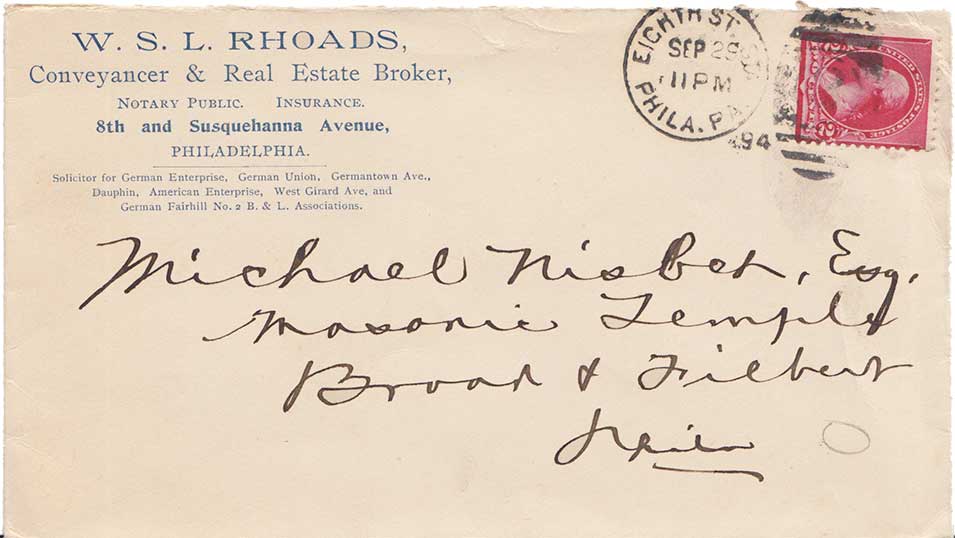 W. S. L. RHOADS,
Conveyancer & Real Estate Broker,
NOTARY PUBLIC. INSURANCE.
8th and Susquehanna Avenue,
PHILADELPHIA.
Solicitor for German Enterprise, German Union, Germantown Ave.,
Dauphin, American Enterprise, West Girard Ave, and
German Fairhill No. 2 B. & L. Associations.
EIGHTH ST.
SEP 29
11 PM
PHILA. PA.
94
UNITED STATES POSTAGE
Michael Nisbet, Esq.
Masonic Temple
Broad & Filbert
Phila